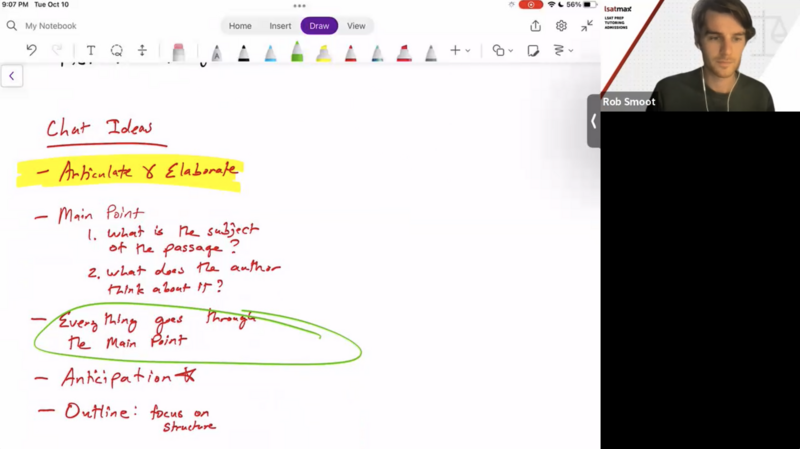 9:07 PM Tue Oct 10
56%
My Notebook
Home Insert Draw View
lsatmax
LSAT PREP
TUTORING
ADMISSIONS
Rob Smoot
Chat Ideas
- Articulate & Elaborate
- Main Point
1. What is the subject
of the passage?
2. What does the author
think about it?
- Everything goes through
the Main Point
- Anticipation
- Outline: focus on
structure